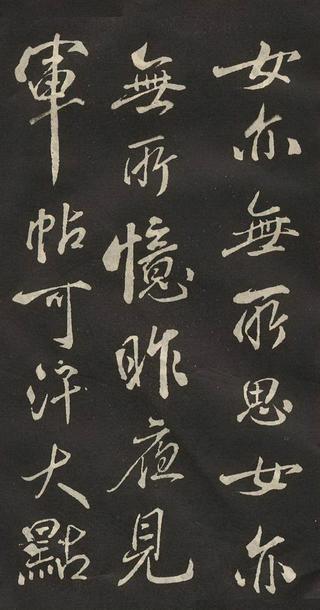 女亦無所思女亦
無所憶昨夜見
軍帖可汗大點